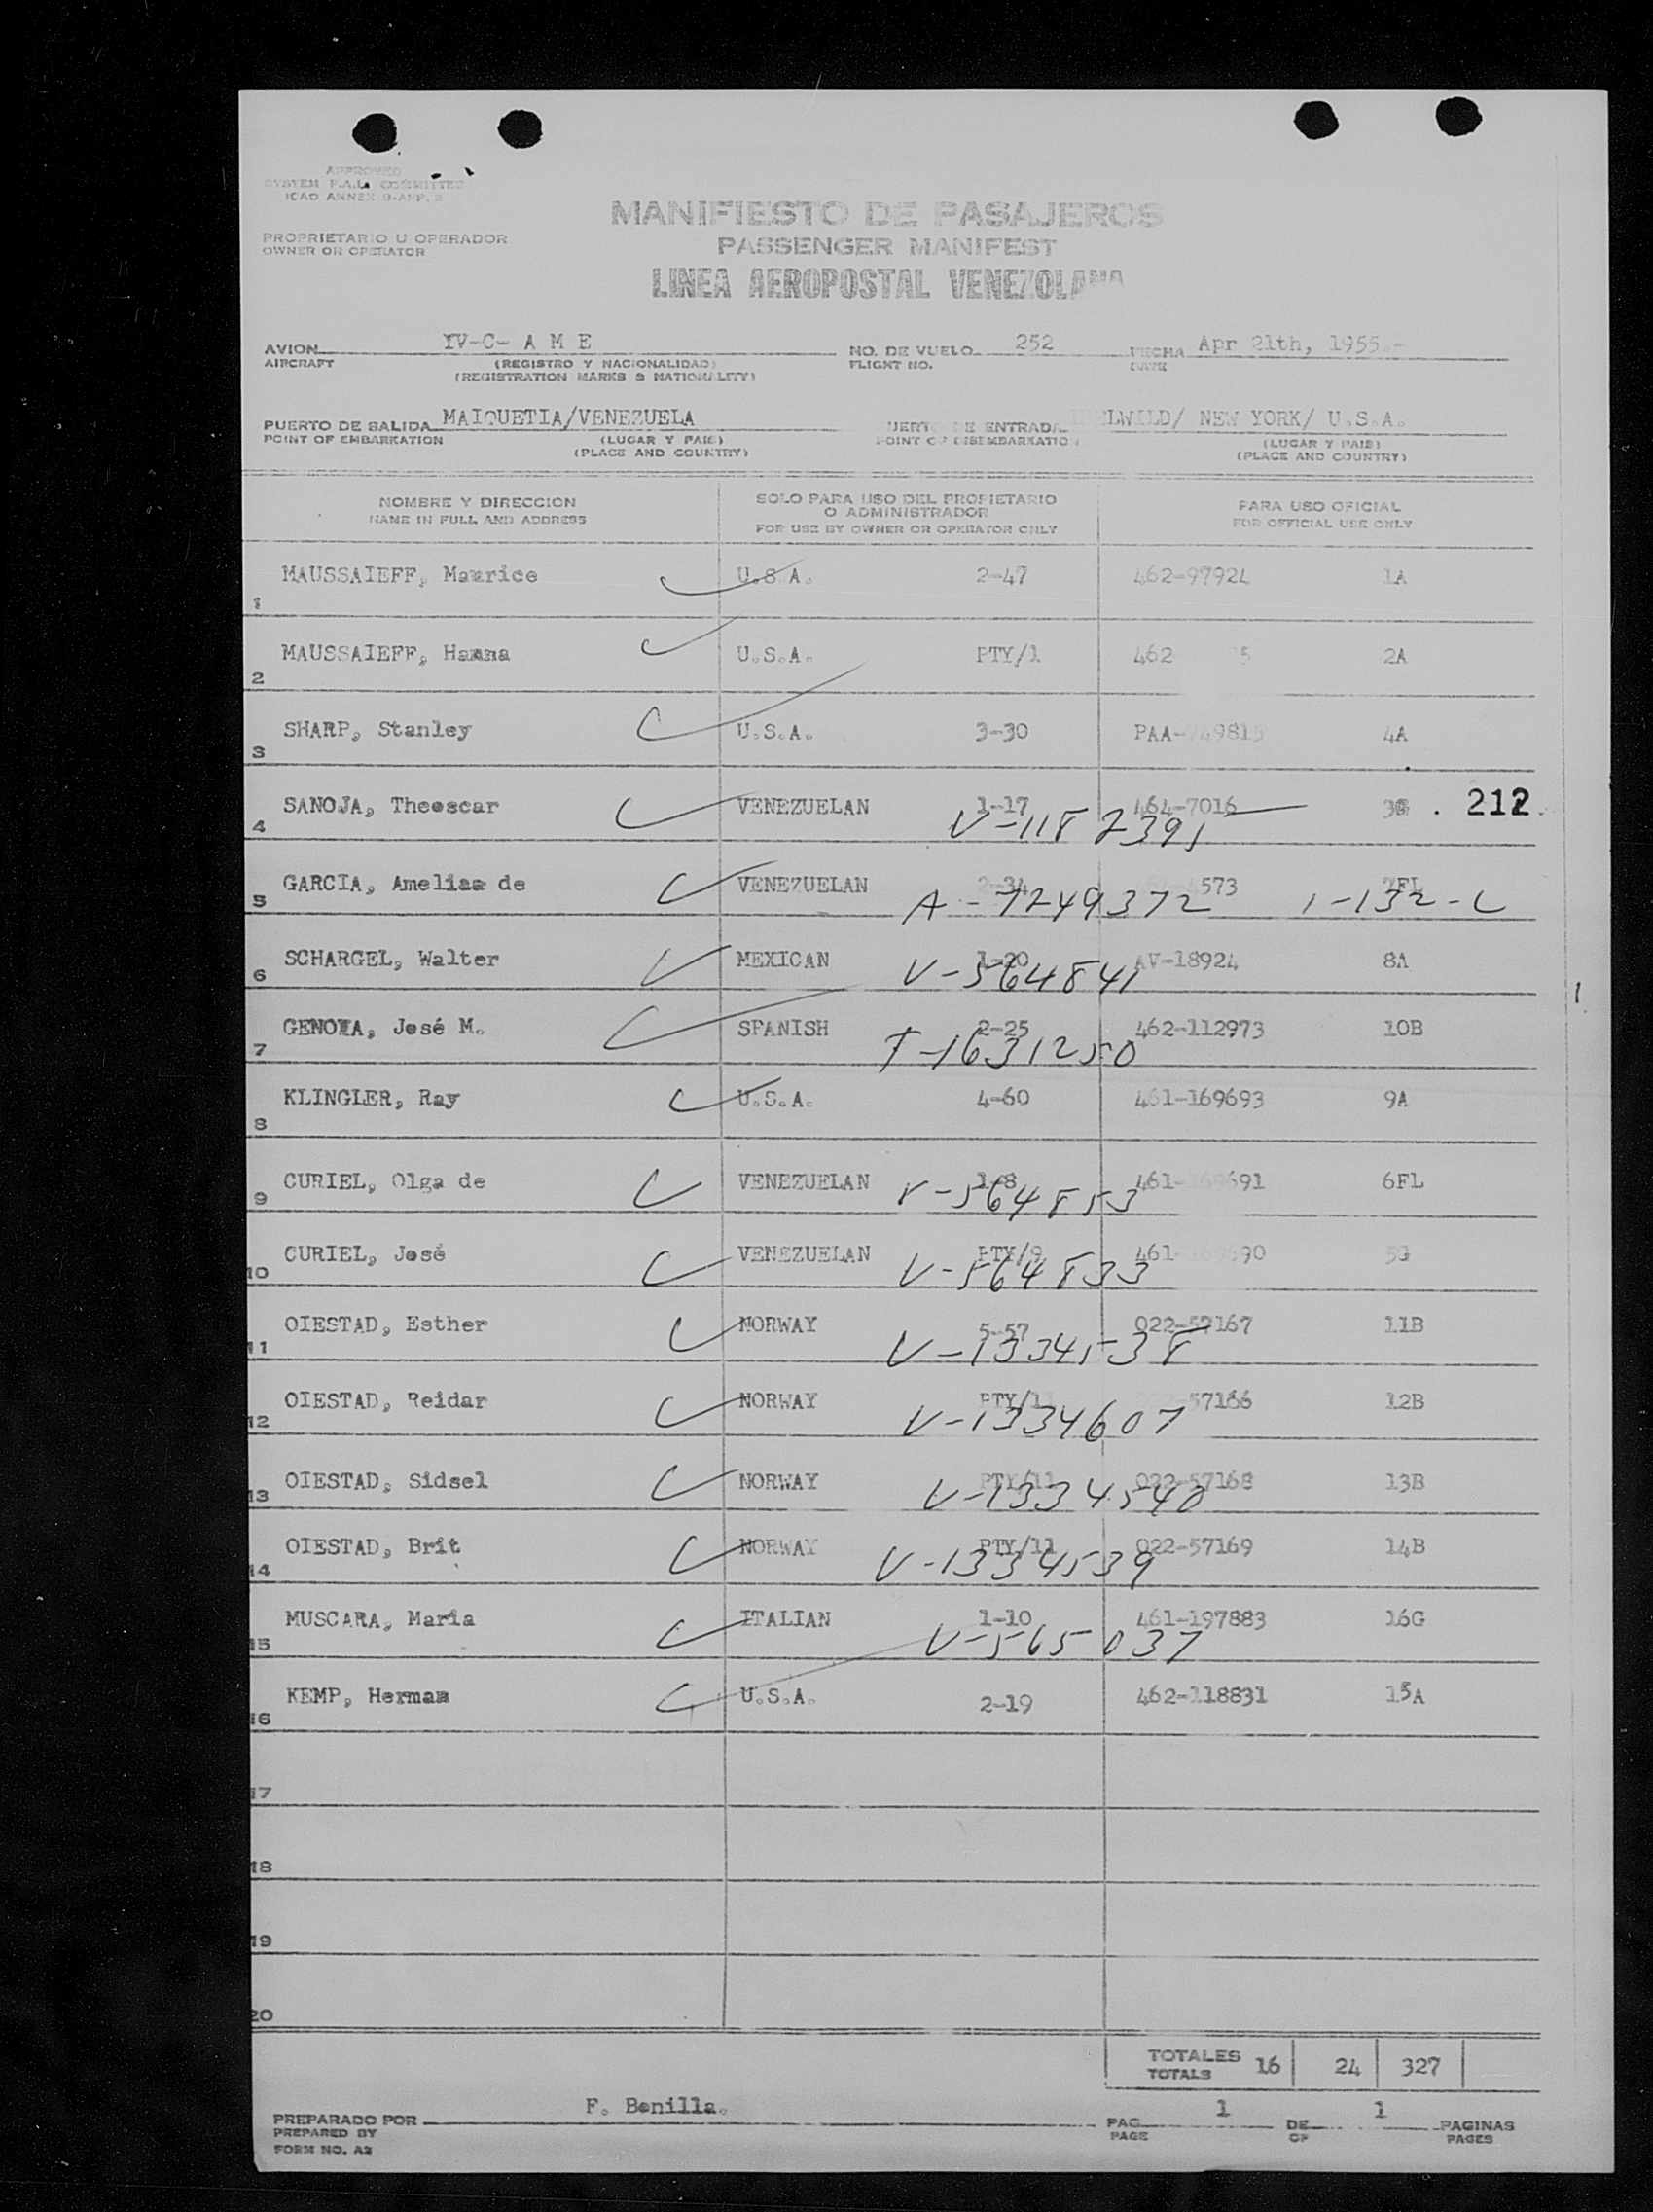 APPROVED
SYSTEM F.A.L. COMMITTEE
ICAO ANNEX 9-APP. 2
MANIFIESTO DE PASAJEROS
PROPRIETARIO U OPERADOR
OWNER OR OPERATOR
PASSENGER MANIFEST
LINEA AEROPOSTAL VENEZOLANA
AVION YV-C- A M E NO. DE VUELO 252 FECHA Apr 21th, 1955.-
AIRCRAFT (REGISTRO Y NACIONALIDAD) FLIGHT NO. DATE
(REGISTRATION MARKS & NATIONALITY)
PUERTO DE SALIDA MAIQUETIA/VENEZUELA PUERTO DE ENTRADA LWILD/ NEW YORK/ U.S.A.
POINT OF EMBARKATION (LUGAR Y PAIS) POINT OF DISEMBARKATION (LUGAR Y PAIS)
(PLACE AND COUNTRY) (PLACE AND COUNTRY)
NOMBRE Y DIRECCION SOLO PARA USO DEL PROPIETARIO O ADMINISTRADOR PARA USO OFICIAL
NAME IN FULL AND ADDRESS FOR USE BY OWNER OR OPERATOR ONLY FOR OFFICIAL USE ONLY
1 MAUSSAIEFF, Maurice U.S.A. 2-47 462-97924 1A
2 MAUSSAIEFF, Hanna U.S.A. PTY/1 462 5 2A
3 SHARP, Stanley U.S.A. 3-30 PAA- 49815 4A
4 SANOJA, Theoscar VENEZUELAN 1-17 464-7016 . 212.
V-1182391
5 GARCIA, Amelia de VENEZUELAN 2-34 573 7FL
A-7249372 1-132-L
6 SCHARGEL, Walter MEXICAN 1-20 AV-18924 8A
V-564841
7 GENOVA, José M. SPANISH 2-25 462-112973 10B
T-1631250
8 KLINGLER, Ray U.S.A. 4-60 461-169693 9A
9 CURIEL, Olga de VENEZUELAN 1-8 461- 691 6FL
V-564853
10 CURIEL, José VENEZUELAN PTY/9 461- 90 5G
V-564833
11 OIESTAD, Esther NORWAY 5-57 022-57167 11B
V-1334538
12 OIESTAD, Reidar NORWAY PTY/11 57166 12B
V-1334607
13 OIESTAD, Sidsel NORWAY PTY/11 022-57168 13B
V-1334540
14 OIESTAD, Brit NORWAY PTY/11 022-57169 14B
V-1334539
15 MUSCARA, Maria ITALIAN 1-10 461-197883 16G
V-565037
16 KEMP, Herman U.S.A. 2-19 462-118831 15A
17
18
19
20
TOTALES 16 24 327
TOTALS
F. Bonilla.
PREPARADO POR PAG. 1 DE 1 PAGINAS
PREPARED BY PAGE OF PAGES
FORM NO. A2